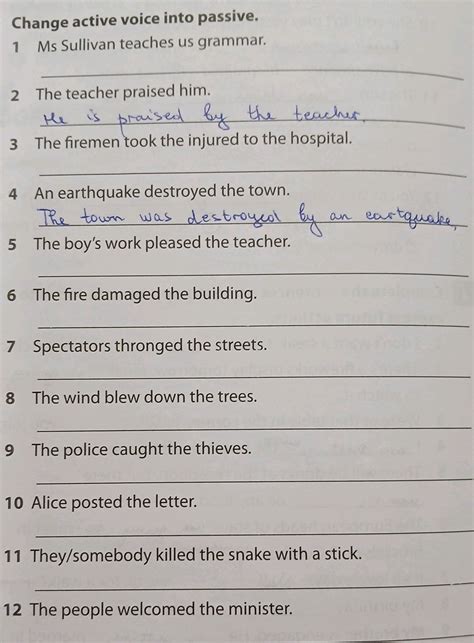 Change active voice into passive.
1 Ms Sullivan teaches us grammar.
2 The teacher praised him.
He is praised by the teacher.
3 The firemen took the injured to the hospital.
4 An earthquake destroyed the town.
The town was destroyed by an eartquake.
5 The boy's work pleased the teacher.
6 The fire damaged the building.
7 Spectators thronged the streets.
8 The wind blew down the trees.
9 The police caught the thieves.
10 Alice posted the letter.
11 They/somebody killed the snake with a stick.
12 The people welcomed the minister.